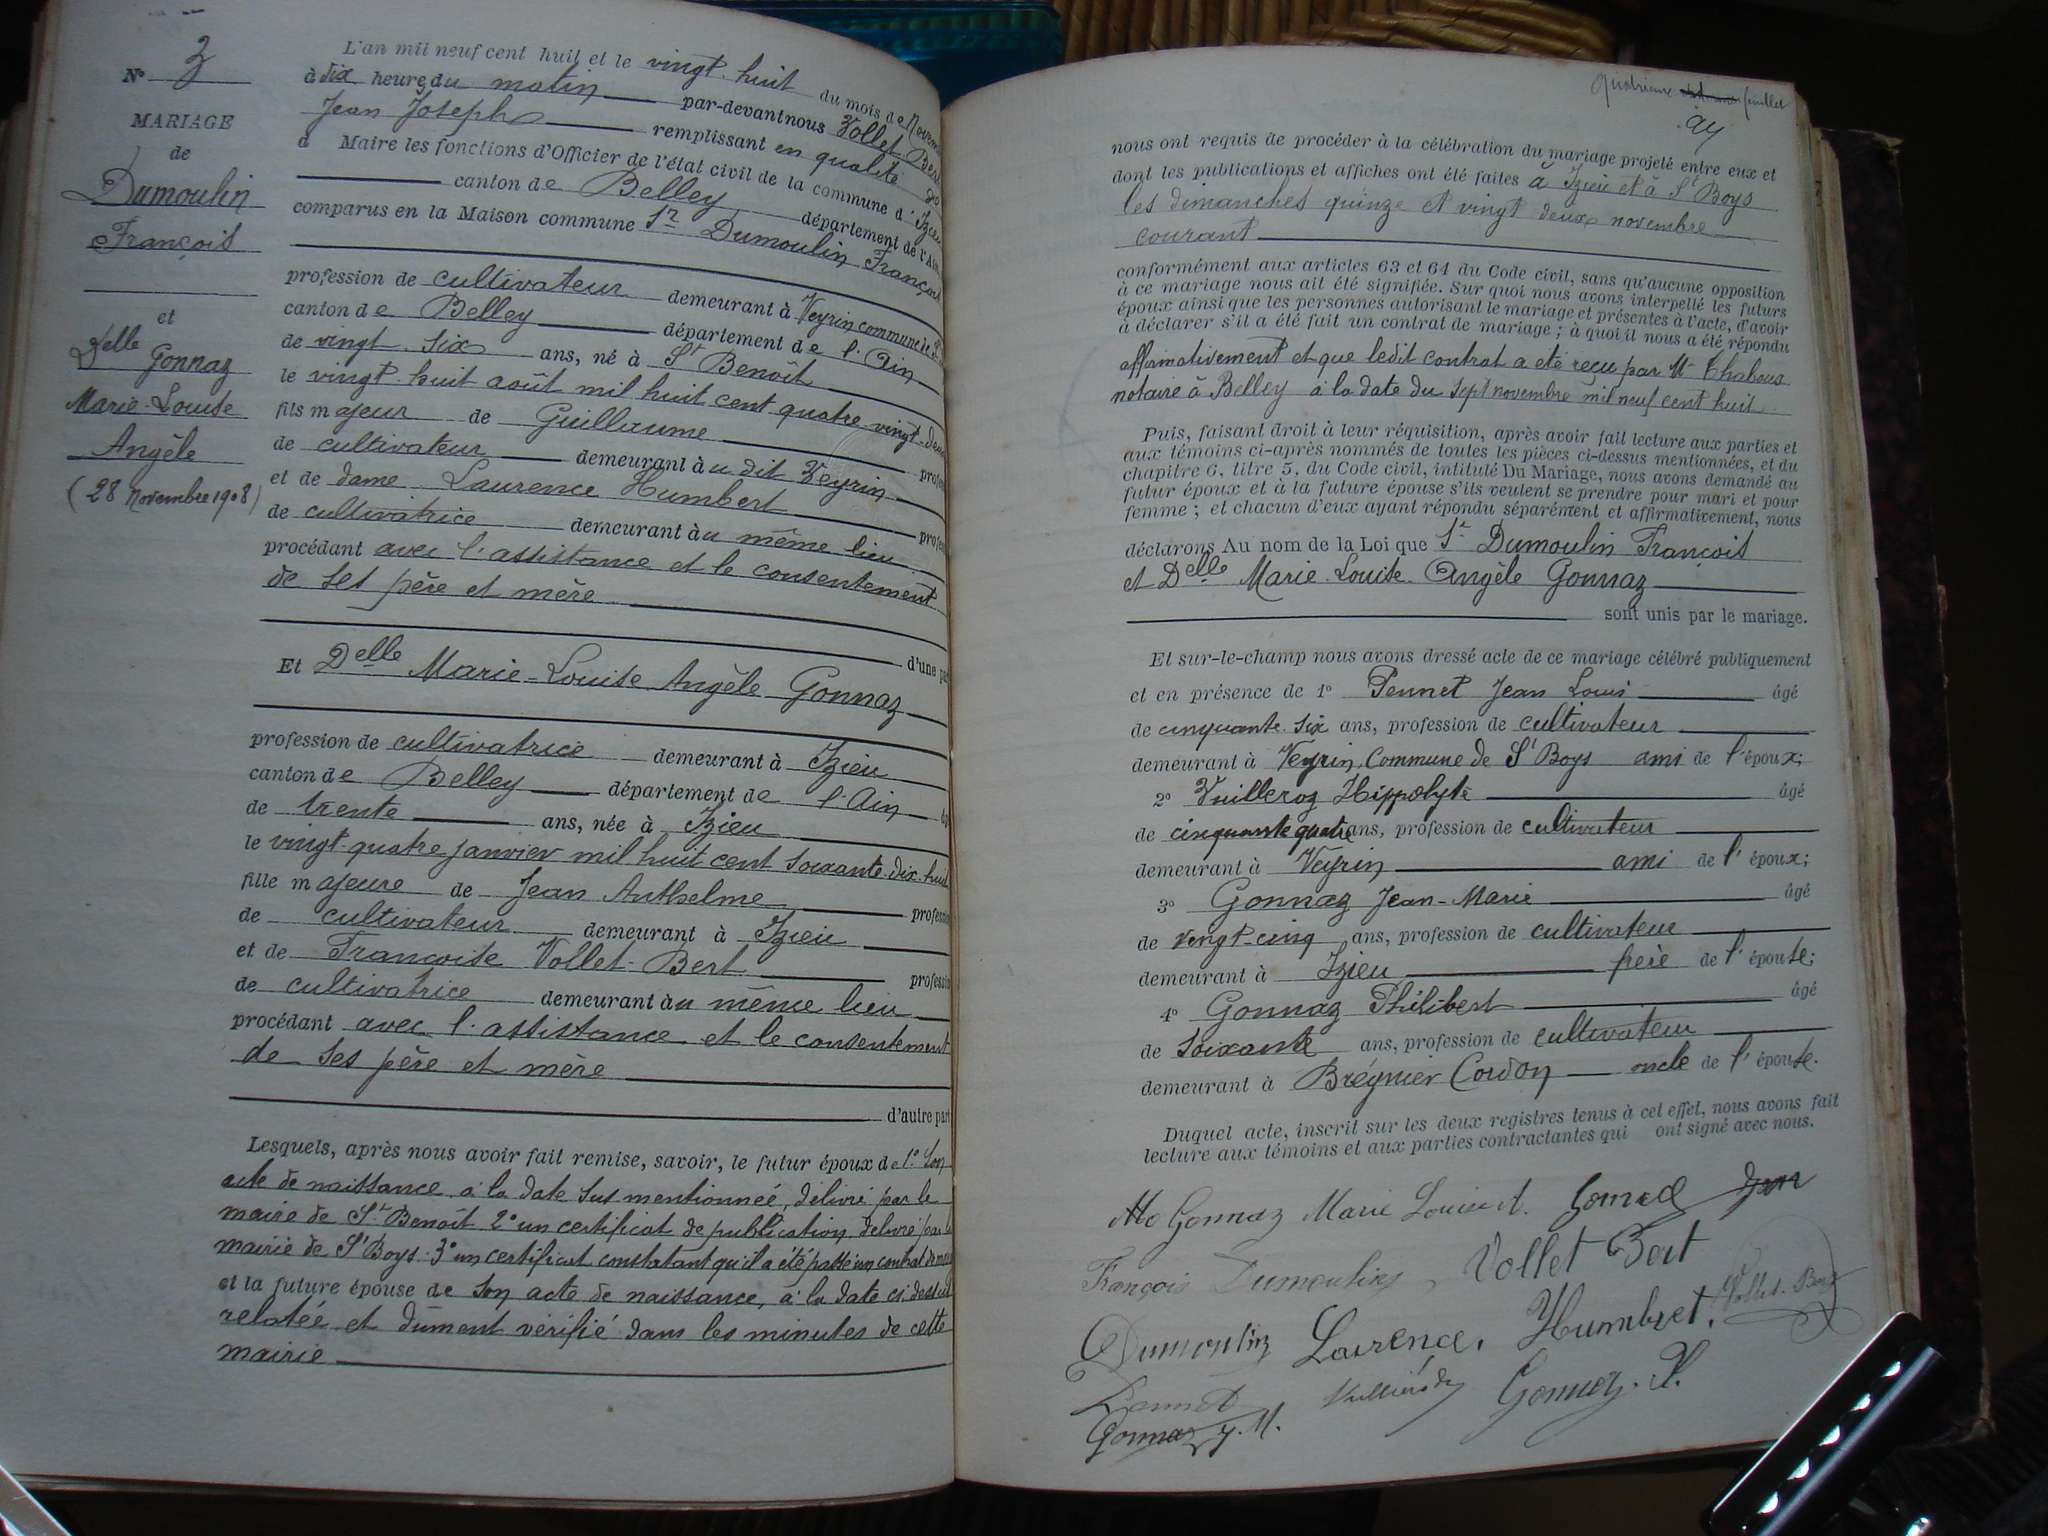 N° 3
MARIAGE
de
Dumoulin
François
et
Delle Gonnaz
Marie-Louise
Angèle
(28 Novembre 1908)
L'an mil neuf cent huit et le vingt-huit du mois de Novem
à dix heures du matin par-devant nous Vollet Bert
Jean Joseph remplissant en qualité de
Maire les fonctions d'Officier de l'état civil de la commune d'Izieu
canton de Belley département de l'Ain
comparus en la Maison commune Sr Dumoulin François
profession de cultivateur demeurant à Veyrin commune de
canton de Belley département de l'Ain
de vingt-six ans, né à St Benoît
le vingt-huit août mil huit cent quatre-vingt-deux
fils majeur de Guillaume profes
de cultivateur demeurant au dit Veyrin
et de dame Laurence Humbert profes
de cultivatrice demeurant au même lieu
procédant avec l'assistance et le consentement
de ses père et mère
d'une par
Et Delle Marie-Louise Angèle Gonnaz
profession de cultivatrice demeurant à Izieu
canton de Belley département de l'Ain
de trente ans, née à Izieu
le vingt-quatre janvier mil huit cent soixante-dix-huit
fille majeure de Jean Anthelme profession
de cultivateur demeurant à Izieu
et de Françoise Vollet-Bert profession
de cultivatrice demeurant au même lieu
procédant avec l'assistance et le consentement
de ses père et mère
d'autre part
Lesquels, après nous avoir fait remise, savoir, le futur époux de 1° son
acte de naissance à la date sus mentionnée, délivré par le
maire de St Benoît 2° un certificat de publication délivré par le
mairie de St Boys 3° un certificat constatant qu'il a été passé un contrat de
et la future épouse de son acte de naissance, à la date ci-dessus
relatée et dûment vérifié dans les minutes de cette
mairie
Quatrième feuillet
nous ont requis de procéder à la célébration du mariage projeté entre eux et
dont les publications et affiches ont été faites à Izieu et à St Boys
les dimanches quinze et vingt deux novembre
courant
conformément aux articles 63 et 64 du Code civil, sans qu'aucune opposition
à ce mariage nous ait été signifiée. Sur quoi nous avons interpellé les futurs
époux ainsi que les personnes autorisant le mariage et présentes à l'acte, d'avoir
à déclarer s'il a été fait un contrat de mariage ; à quoi il nous a été répondu
affirmativement et que ledit contrat a été reçu par Me Chaboux
notaire à Belley à la date du sept novembre mil neuf cent huit
Puis, faisant droit à leur réquisition, après avoir fait lecture aux parties et
aux témoins ci-après nommés de toutes les pièces ci-dessus mentionnées, et du
chapitre 6, titre 5, du Code civil, intitulé Du Mariage, nous avons demandé au
futur époux et à la future épouse s'ils veulent se prendre pour mari et pour
femme ; et chacun d'eux ayant répondu séparément et affirmativement, nous
déclarons Au nom de la Loi que Sr Dumoulin François
et Delle Marie-Louise-Angèle Gonnaz
sont unis par le mariage.
Et sur-le-champ nous avons dressé acte de ce mariage célébré publiquement
et en présence de 1° Pennet Jean Louis âgé
de cinquante-six ans, profession de cultivateur
demeurant à Veyrin, Commune de St Boys ami de l'époux;
2° Vuilleroz Hippolyte âgé
de cinquante quatre ans, profession de cultivateur
demeurant à Veyrin ami de l'époux;
3° Gonnaz Jean-Marie âgé
de vingt-cinq ans, profession de cultivateur
demeurant à Izieu frère de l'épouse;
4° Gonnaz Philibert âgé
de soixante ans, profession de cultivateur
demeurant à Brégnier Cordon oncle de l'épouse.
Duquel acte, inscrit sur les deux registres tenus à cet effet, nous avons fait
lecture aux témoins et aux parties contractantes qui ont signé avec nous.
Gonnaz Marie Louise A. Gonnaz
François Dumoulin Vollet Bert
Dumoulin Laurence. Humbret. Vollet-Bert
Pennet Gonnaz. P.
Gonnaz J. M.